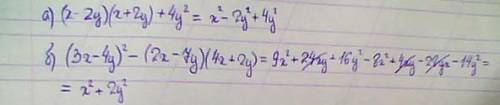 а) (x-2y)(x+2y)+4y² = x²-2y²+4y²
б) (3x-4y)²-(2x-7y)(4x+2y)=9x²+24xy+16y²-8x²+4xy-28xy-14y²=
= x²+2y²